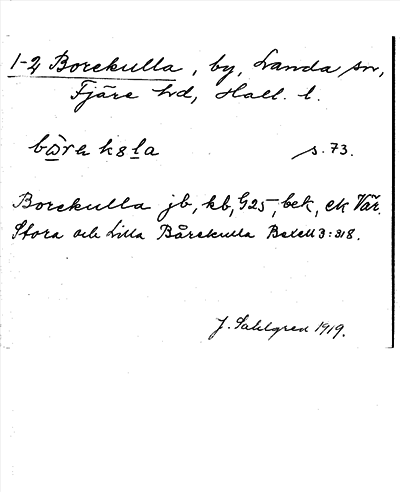 1-2, Borekulla, by, Landa sn,
Fjäre hd, Hall. l.
s. 73.
Borekulla jb, kb, G25, bek, ek Vär.
Stora och Lilla Bårekulla Bexell 3:318.
J. Sahlgren 1919.